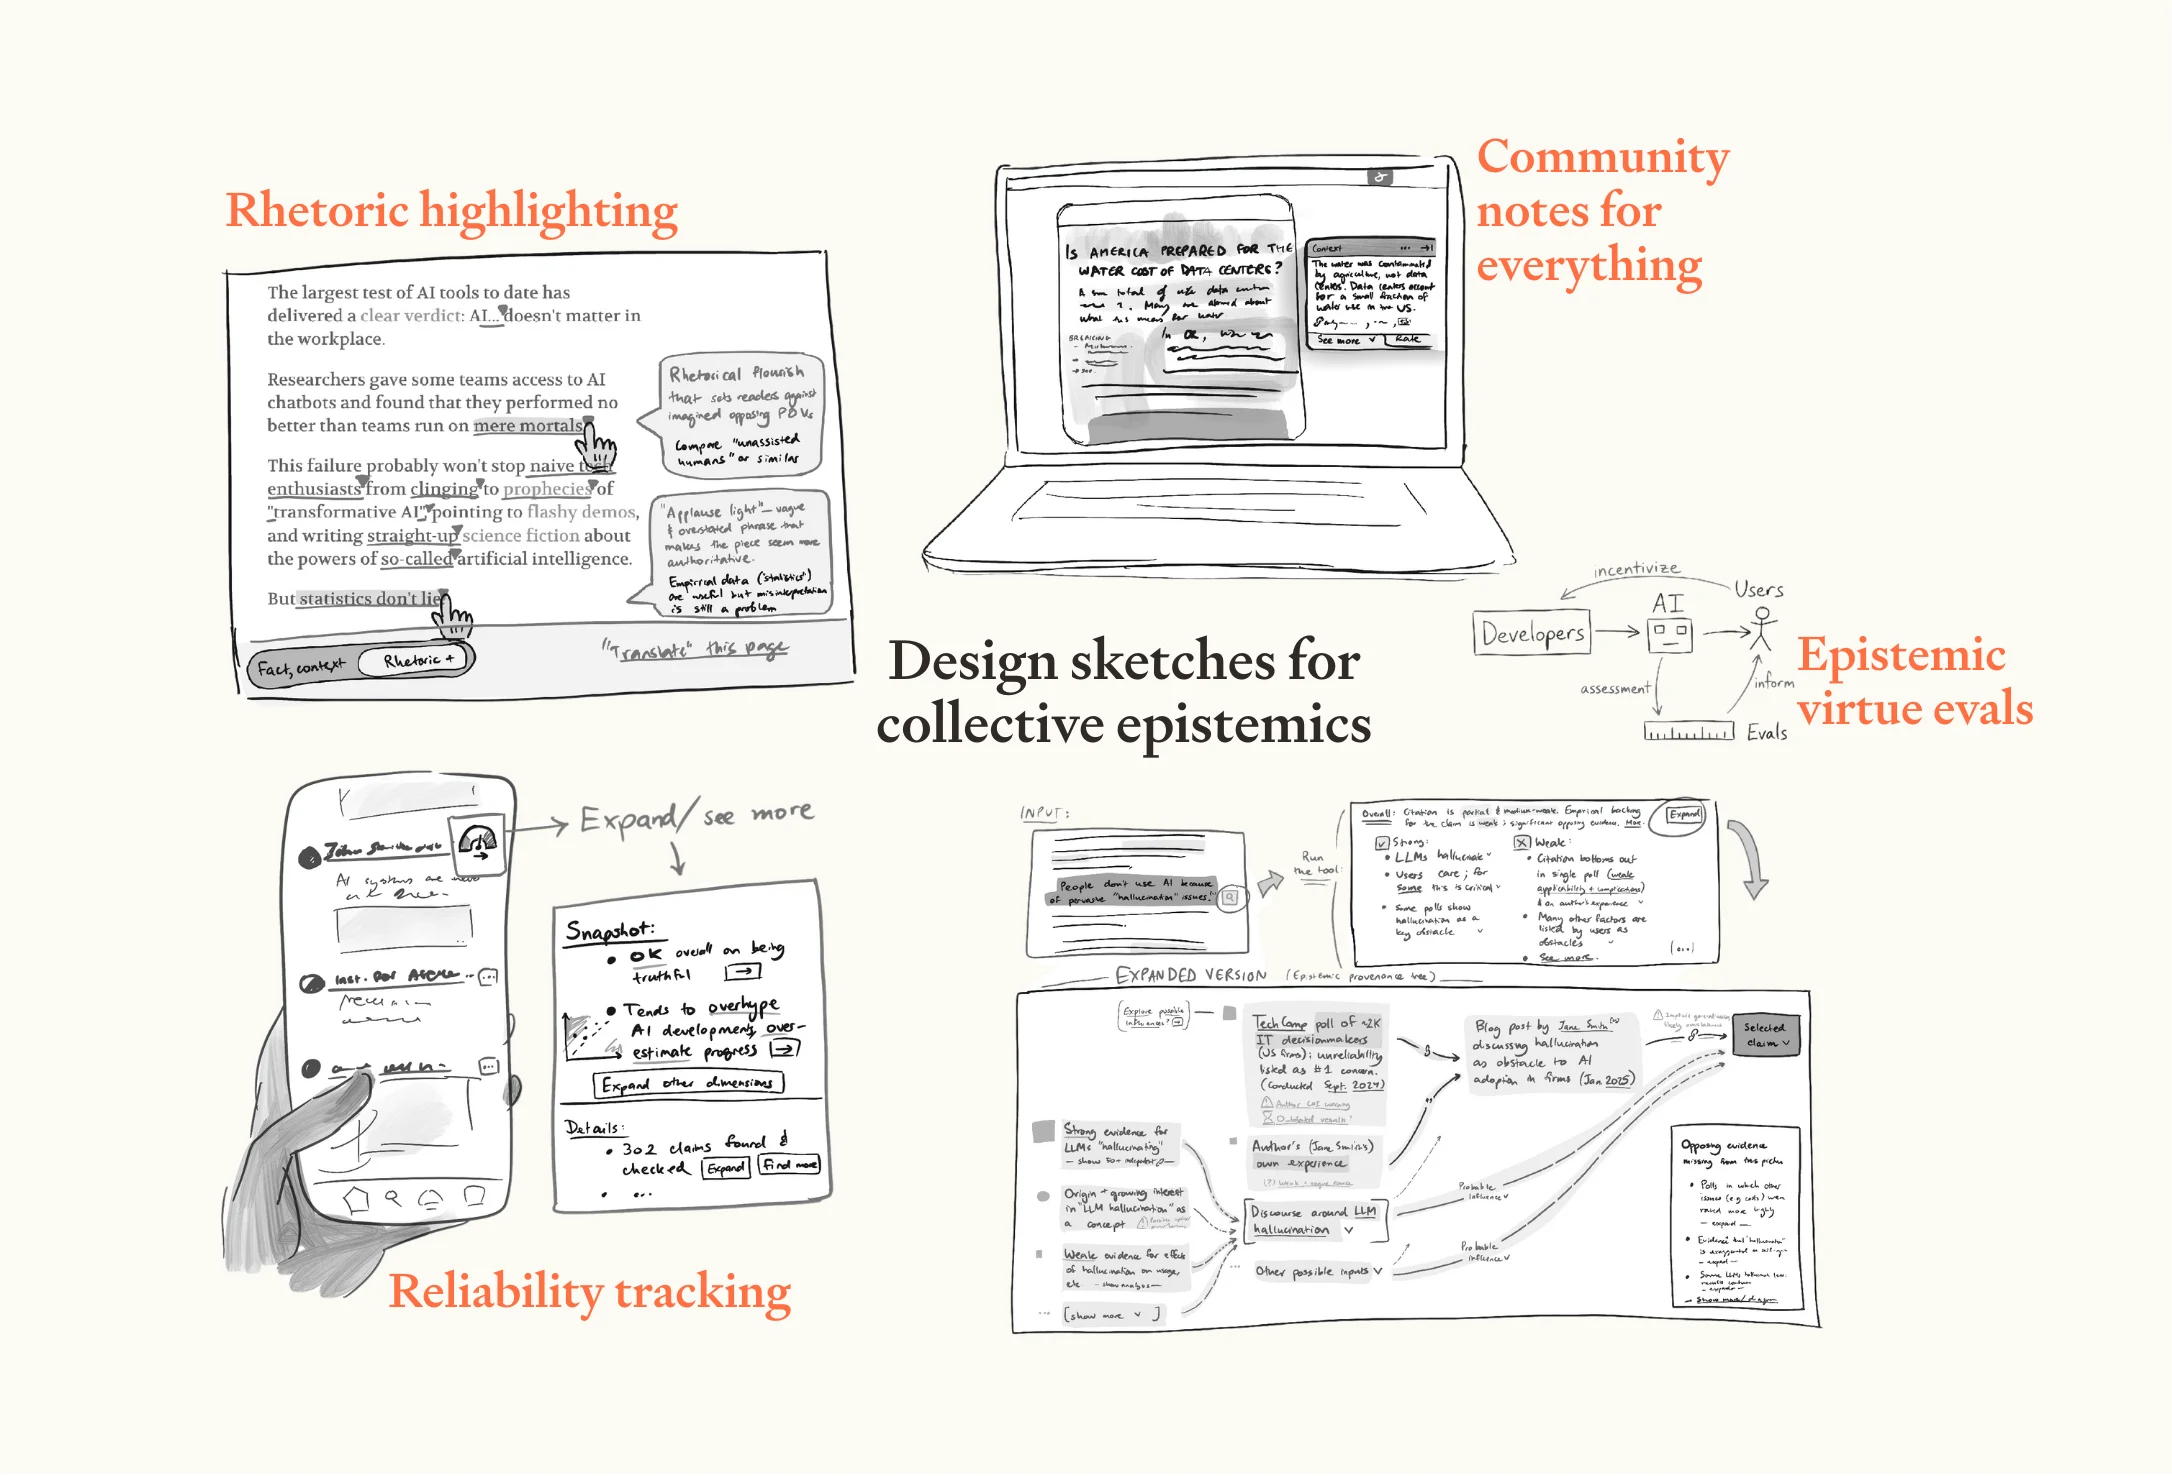 Rhetoric highlighting
The largest test of AI tools to date has
delivered a clear verdict: AI... doesn't matter in
the workplace.
Researchers gave some teams access to AI
chatbots and found that they performed no
better than teams run on mere mortals
This failure probably won't stop naive tech
enthusiasts from clinging to prophecies of
"transformative AI", pointing to flashy demos,
and writing straight-up science fiction about
the powers of so-called artificial intelligence.
But statistics don't lie
Rhetorical flourish
that sets readers against
imagined opposing POVs
Compare "unassisted
humans" or similar
"Applause light" — vague
& overstated phrase that
makes the piece seem more
authoritative.
Empirical data ("statistics")
are useful but misinterpretation
is still a problem
Fact, context
Rhetoric +
"Translate" this page
Community
notes for
everything
Is AMERICA PREPARED FOR THE
WATER COST OF DATA CENTERS?
what this means for water
BREAKING
Context
The water was contaminated
by agriculture, not data
centers. Data centers account
for a small fraction of
water use in the US.
See more
Rate
Design sketches for
collective epistemics
incentivize
Developers
AI
Users
assessment
inform
Evals
Epistemic
virtue evals
Expand/see more
AI systems are never
Snapshot:
OK overall on being
truthful
Tends to overhype
AI developments, over-
estimate progress
Expand other dimensions
Details:
302 claims found &
checked Expand Find more
...
Reliability tracking
INPUT:
People don't use AI because
of pervasive "hallucination" issues.
Run
the tool:
Overall: Citation is partial & medium-weak. Empirical backing
for the claim is weak; significant opposing evidence. More.
Expand
Strong:
LLMs hallucinate
Users care; for
some this is critical
Some polls show
hallucination as a
key obstacle
Weak:
Citation bottoms out
in single poll (weak
applicability + implications)
& on author's experience
Many other factors are
listed by users as
obstacles
See more.
(...)
EXPANDED VERSION (Epistemic provenance tree)
Explore possible
influences?
TechComp poll of ~2K
IT decisionmakers
(US firms); unreliability
listed as #1 concern.
(Conducted Sept. 2024)
Author COI warning
Blog post by Jane Smith
discussing hallucination
as obstacle to AI
adoption in firms (Jan 2025)
Selected
claim
Strong evidence for
LLMs "hallucinating"
Author's (Jane Smith's)
own experience
Origin + growing interest
in "LLM hallucination" as
a concept
Discourse around LLM
hallucination
Weak evidence for effect
of hallucination on usage,
etc — show analysis —
Other possible inputs
[show more]
Probable
influence
Probable
influence
Opposing evidence
missing from this picture
Polls in which other
issues (e.g. costs) were
rated more highly
— expand —
Evidence that "hallucination"
— expand —
— expand —